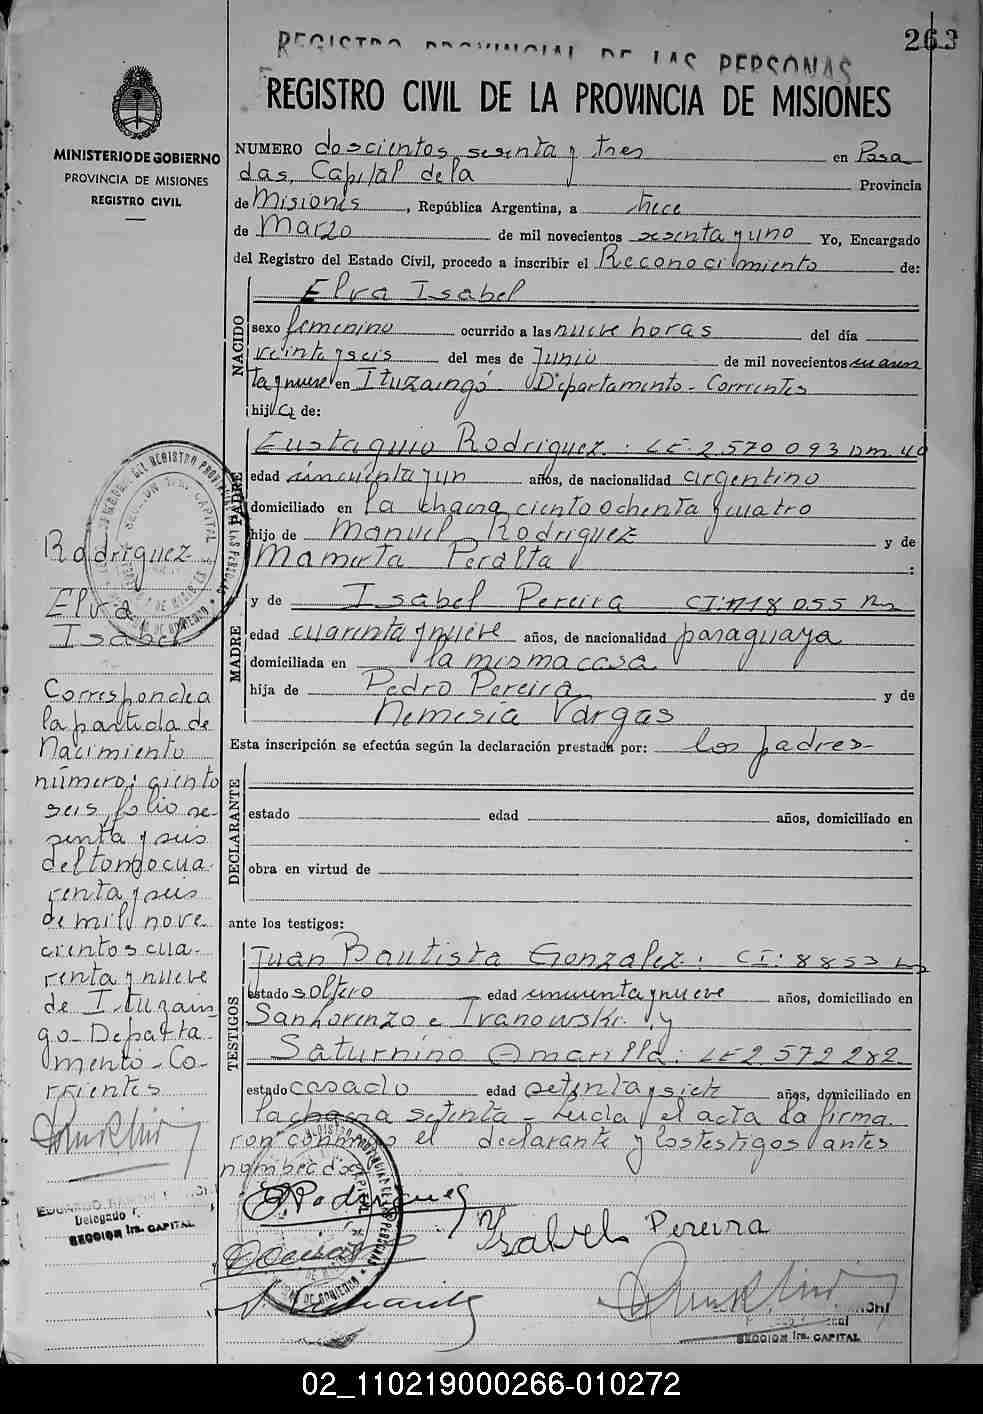 263
REGISTRO PROVINCIAL DE LAS PERSONAS
REGISTRO CIVIL DE LA PROVINCIA DE MISIONES
MINISTERIO DE GOBIERNO
PROVINCIA DE MISIONES
REGISTRO CIVIL
NUMERO doscientos sesenta y tres en Posa
das, Capital de la Provincia
de Misiones, República Argentina, a trece
de Marzo de mil novecientos sesenta y uno Yo, Encargado
del Registro del Estado Civil, procedo a inscribir el Reconocimiento de:
NACIDO
Elva Isabel
sexo femenino ocurrido a las nueve horas del día
veinte y seis del mes de Junio de mil novecientos cuaren
ta y nueve en Ituzaingó Departamento - Corrientes
hija de:
PADRE
Eustaquio Rodriguez. LE. 2.570.093 DM. 40
edad sincuenta y un años, de nacionalidad argentino
domiciliado en la chacra ciento ochenta y cuatro
hijo de Manuel Rodriguez y de
Mamerta Peralta :
MADRE
y de Isabel Pereira CI: 118055
edad cuarenta y nueve años, de nacionalidad paraguaya
domiciliada en la misma casa
hija de Pedro Pereira y de
Nemesia Vargas
Esta inscripción se efectúa según la declaración prestada por: los padres-
DECLARANTE
estado edad años, domiciliado en
obra en virtud de
ante los testigos:
TESTIGOS
Juan Bautista Gonzalez: CI: 8853
estado soltero edad cincuenta y nueve años, domiciliado en
San Lorenzo e Ivanowski. y
Saturnino Amarilla: LE 2.572.282
estado casado edad setenta y siete años, domiciliado en
la chacra setenta - Leida el acta la firma
ron conmigo el declarante y los testigos antes
nombrados
Rodriguez
Elva
Isabel
Corresponde a
la partida de
Nacimiento
número: ciento
seis folio se-
senta y seis
del tomo cua-
renta y seis
de mil nove
cientos cua-
renta y nueve
de Ituzain
go - Departa
mento - Co-
rrientes
Delegado
SECCION 1ra. CAPITAL
E Rodriguez
Ysabel Pereira
SECCION 1ra. CAPITAL
02_110219000266-010272